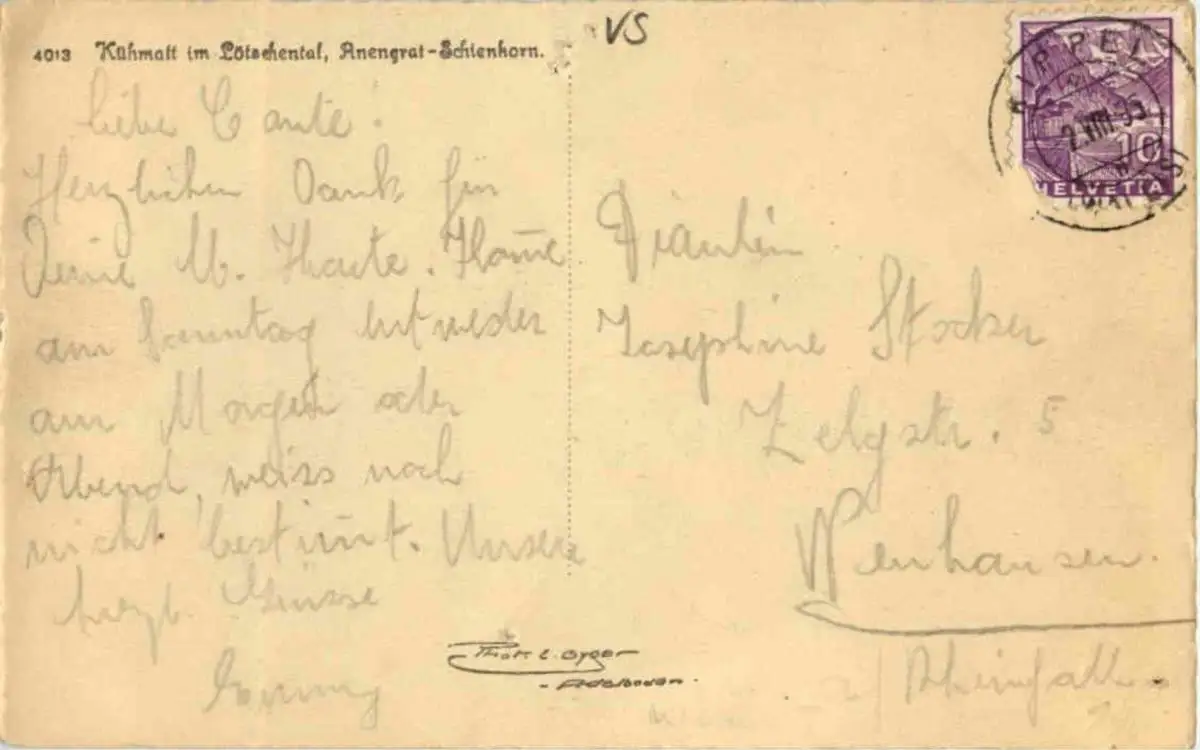 4013 Kühmatt im Lötschental, Anengrat-Schienhorn.
VS
Liebe Tante!
Herzlichen Dank für
Deine M. Karte. Kom̄e
am Sonntag entweder
am Morgen oder
Abend, weiss noch
nicht bestim̄t. Unsere
herzl. Grüsse
KIPPEL
2.VIII.35
10
HELVETIA
Fräulein
Josephine Stocker
Zelgstr. 5
Neuhausen.
a/ Rheinfall.
Phot. E. Gyger
- Adelboden -